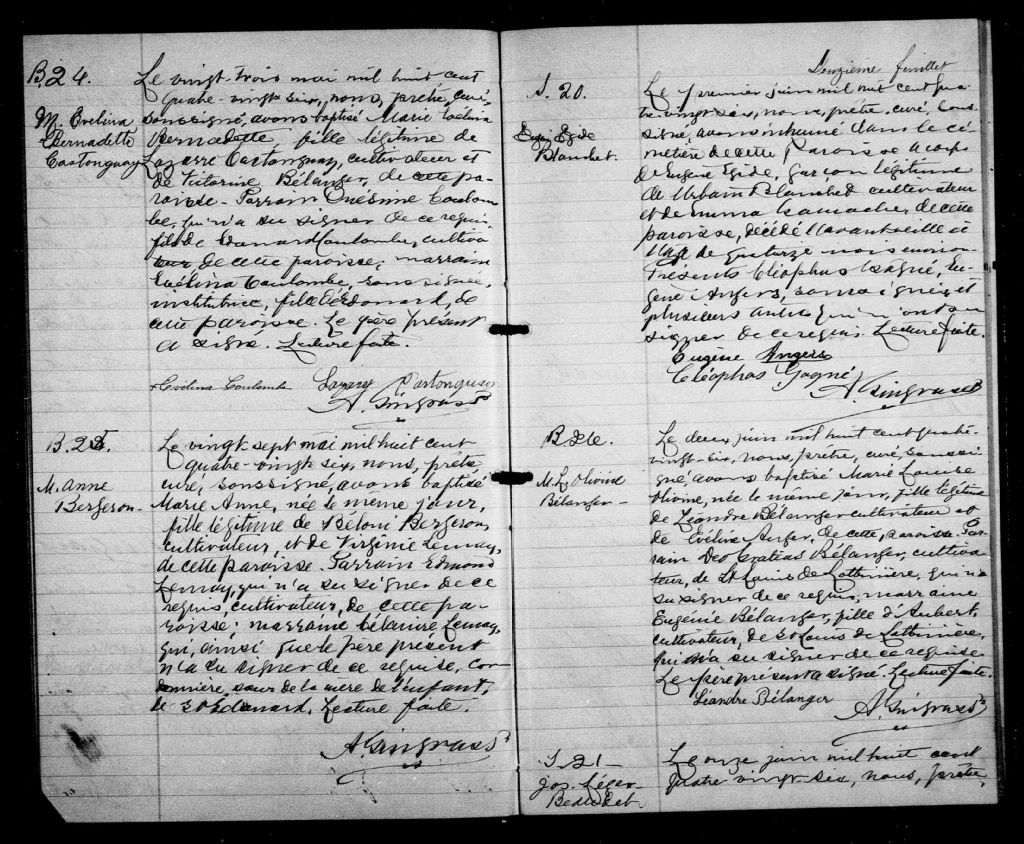 B. 24.
M. Evelina
Bernadette
Castonguay
Le vingt-trois mai mil huit cent
quatre-vingt six, nous, prêtre, curé,
soussigné, avons baptisé Marie Evélina
Bernadette fille légitime de
Lazarre Castonguay, cultivateur et
de Victorine Bélanger, de cette pa-
roisse. Parrain Onésime Coulom-
be, qui n'a su signer de ce requis
fils de Edouard Coulombe, cultiva
teur de cette paroisse; marraine
Evélina Coulombe, soussignée,
institutrice, fille d'Edouard, de
cette paroisse. Le père présent
a signé. Lecture faite.
+Evelina Coulombe Lazare Castonguay
A. Gingras Ptre
B. 25.
M. Anne
Bergeron
Le vingt sept mai mil huit cent
quatre-vingt six, nous, prêtre,
curé, soussigné, avons baptisé
Marie Anne, née le même jour,
fille légitime de Béloni Bergeron,
cultivateur, et de Virginie Lemay,
de cette paroisse. Parrain Edmond
Lemay, qui n'a su signer de ce
requis, cultivateur, de cette pa-
roisse; marraine Célanire Lemay,
qui, ainsi que le père présent
n'a su signer de ce requise, cor-
donnière, sœur de la mère de l'enfant,
de St Edouard. Lecture faite.
A. Gingras Ptre
Deuxième feuillet
S. 20.
Eugè Egide
Blanchet.
Le premier juin mil huit cent qua
tre vingt six, nous, prêtre, curé, sous
signé, avons inhumé dans le ci-
metière de cette paroisse le corps
de Eugène Egide, garçon légitime
de Urbain Blanchet cultivateur
et de Emma Gamache, de cette
paroisse, décédé l'avant veille à
l'âge de quatorze mois environ
Présents Cléophas Gagné, Eu-
gène Angers, soussignés, et
plusieurs autres qui n'ont su
signer de ce requis. Lecture faite.
Eugène Angers
Cléophas Gagné
A. Gingras Ptre
B. 26.
M. L. Olivine
Bélanger
Le deux juin mil huit cent quatre
vingt-six, nous, prêtre, curé, sous si-
gné, avons baptisé Marie Louise
Olivine, née le même jour, fille légitime
de Léandre Bélanger cultivateur et
de Evéline Auger, de cette paroisse. Par-
rain Deo Gratias Bélanger, cultiva-
teur, de St Louis de Lotbinière, qui n'a
su signer de ce requis; marraine
Eugénie Bélanger, fille d'Aubert,
cultivateur, de St Louis de Lotbinière,
qui n'a su signer de ce requise
Le père présent a signé. Lecture faite.
Léandre Bélanger
A. Gingras Ptre
S. 21
Jos. Léger
Beaudet.
Le onze juin mil huit cent
quatre vingt-six, nous, prêtre,